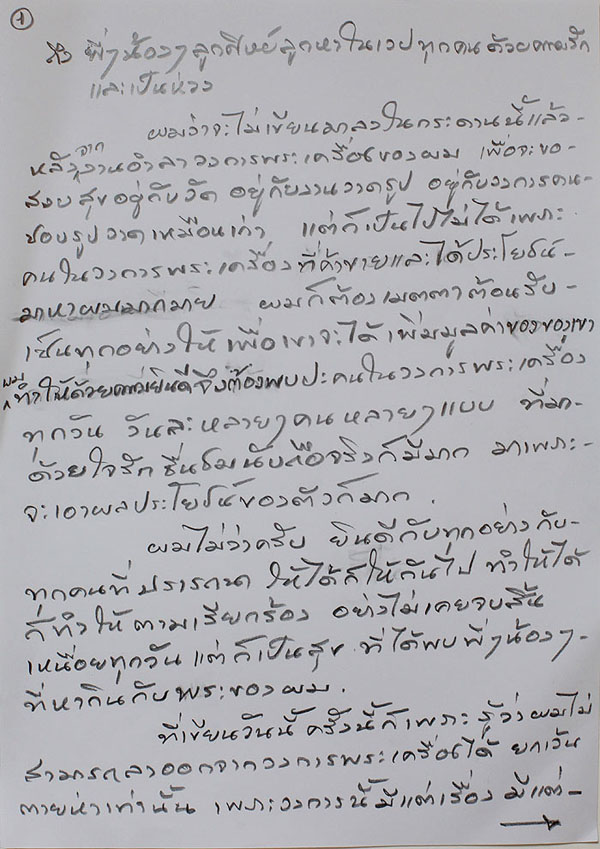 ①
ถึง พี่ๆน้องๆลูกศิษย์ลูกหาในเวปทุกคนด้วยความรัก
และเป็นห่วง
ผมว่าจะไม่เขียนมาลงในกระดานนี้แล้ว-
หลังจากงานอำลาวงการพระเครื่องของผม เพื่อจะขอ-
สงบสุขอยู่กับวัด อยู่กับงานวาดรูป อยู่กับวงการคน-
ชอบรูปวาดเหมือนเก่า แต่ก็เป็นไปไม่ได้เพราะ
คนในวงการพระเครื่องที่ค้าขายและได้ประโยชน์-
มาหาผมมากมาย ผมก็ต้องเมตตาต้อนรับ-
เซ็นทุกอย่างให้เพื่อเขาจะได้เพิ่มมูลค่าของของเขา
ผมทำให้ด้วยความยินดีจึงต้องพบปะคนในวงการพระเครื่อง
ทุกวัน วันละหลายๆคนหลายๆแบบ ที่มา-
ด้วยใจรักชื่นชมนับถือจริงก็มีมาก มาเพราะ-
จะเอาผลประโยชน์ของตัวก็มาก.
ผมไม่ว่าครับ ยินดีกับทุกอย่างกับ-
ทุกคนที่ปรารถนา ให้ได้ก็ให้กันไป ทำให้ได้
ก็ทำให้ตามเรียกร้อง อย่างไม่เคยจบสิ้น
เหนื่อยทุกวัน แต่ก็เป็นสุข ที่ได้พบพี่ๆน้องๆ-
ที่หากินกับพระของผม.
ที่เขียนวันนี้ ครั้งนี้ก็เพราะ รู้ว่าผมไม่
สามารถลาออกจากวงการพระเครื่องได้ ยกเว้น
ตายห่าเท่านั้น เพราะวงการนี้ มีแต่เรื่อง มีแต่-